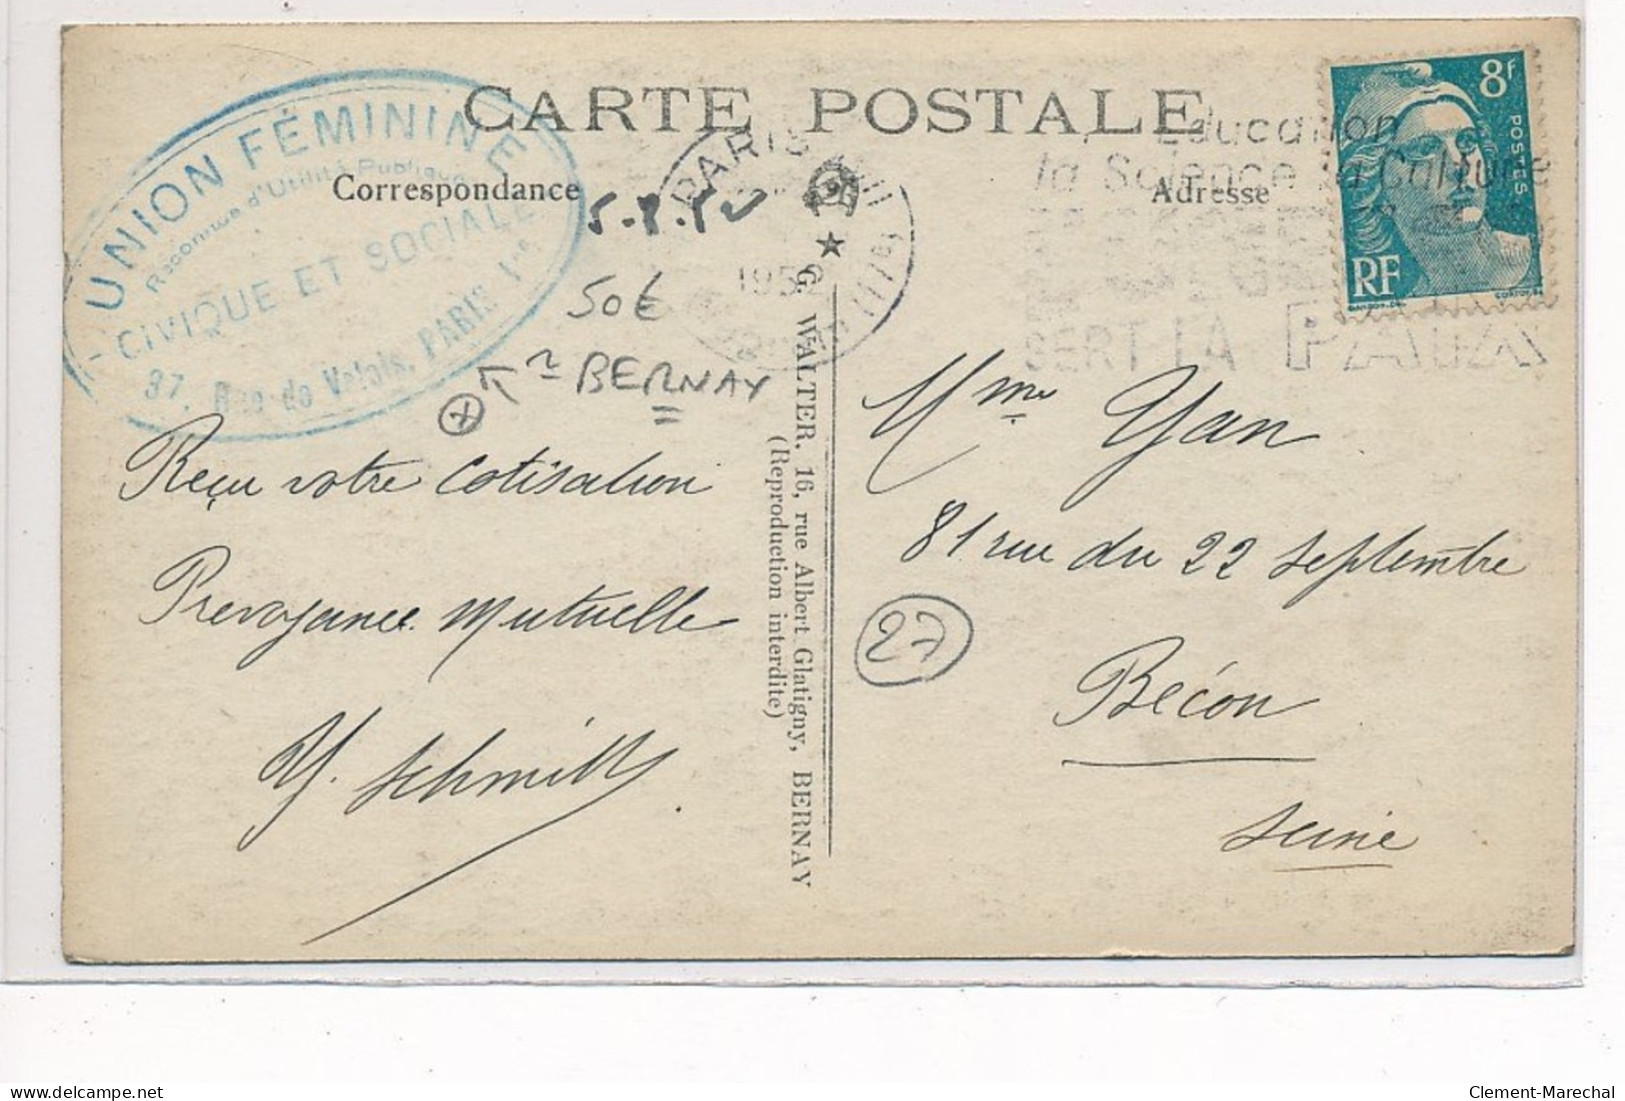 CARTE POSTALE
UNION FÉMININE
Reconnue d'Utilité Publique
CIVIQUE ET SOCIALE
37, Rue de Valois, PARIS 1er
Correspondance
Adresse
PARIS
1952
Education
la Science la Culture
SERT LA PAIX
8F
POSTES
RF
50€
BERNAY
Reçu votre cotisation
Prevoyance Mutuelle
Y. Schmitt
G. WALTER, 16, rue Albert Glatigny, BERNAY
(Reproduction interdite)
Mme Yan
81 rue du 22 septembre
27
Bécon
Seine
delcampe.net
Clement-Marechal